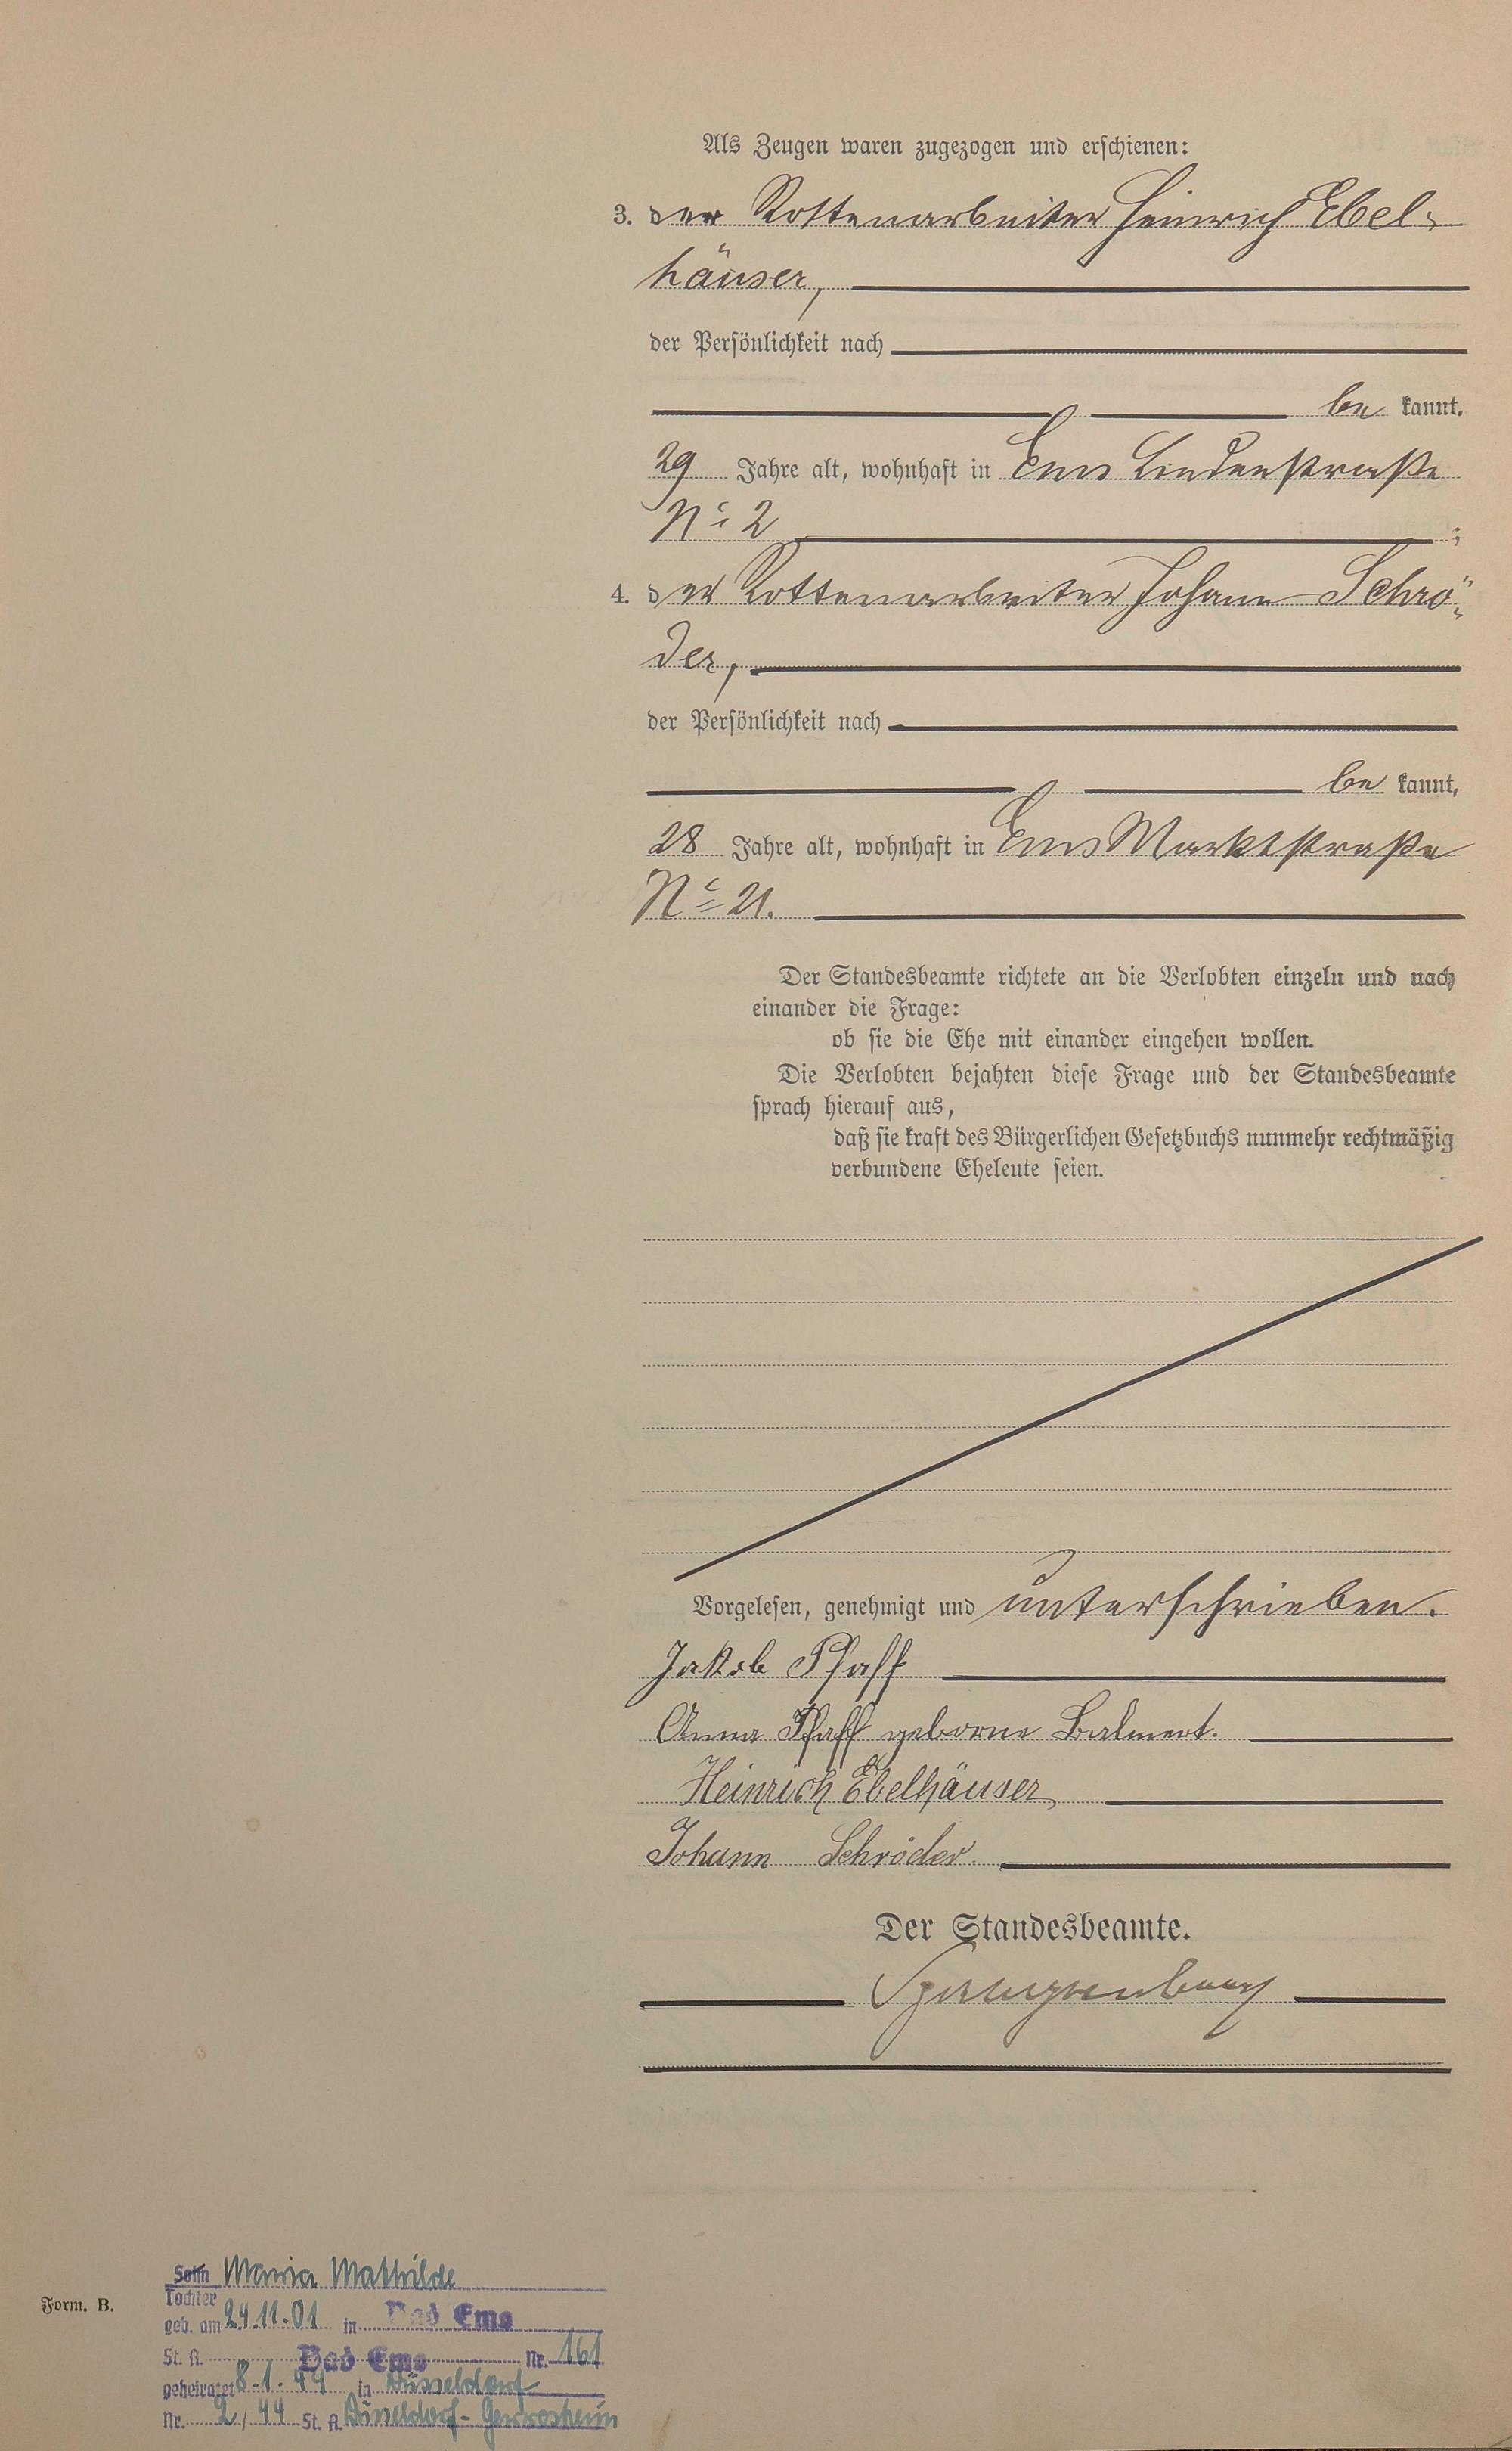 Als Zeugen waren zugezogen und erschienen:
3. der Rottenarbeiter Heinrich Ebel-
häuser,
der Persönlichkeit nach
be kannt.
29 Jahre alt, wohnhaft in Ems Lindenstraße
No 2 ;
4. der Rottenarbeiter Johann Schrö-
der,
der Persönlichkeit nach
be kannt,
28 Jahre alt, wohnhaft in Ems Marktstraße
No 21.
Der Standesbeamte richtete an die Verlobten einzeln und nach
einander die Frage:
ob sie die Ehe mit einander eingehen wollen.
Die Verlobten bejahten diese Frage und der Standesbeamte
sprach hierauf aus,
daß sie kraft des Bürgerlichen Gesetzbuchs nunmehr rechtmäßig
verbundene Eheleute seien.
Vorgelesen, genehmigt und unterschrieben.
Jakob Pfaff
Anna Pfaff geborne Balmert.
Heinrich Ebelhäuser
Johann Schröder
Der Standesbeamte.
Spangenberg
Form. B.
Sohn Maria Mathilde
Tochter
geb. am 24.11.01 in Bad Ems
St. A. Bad Ems Nr. 161
geheiratet 8.1.44 in Düsseldorf
Nr. 2/44 St. A. Düsseldorf-Gerresheim